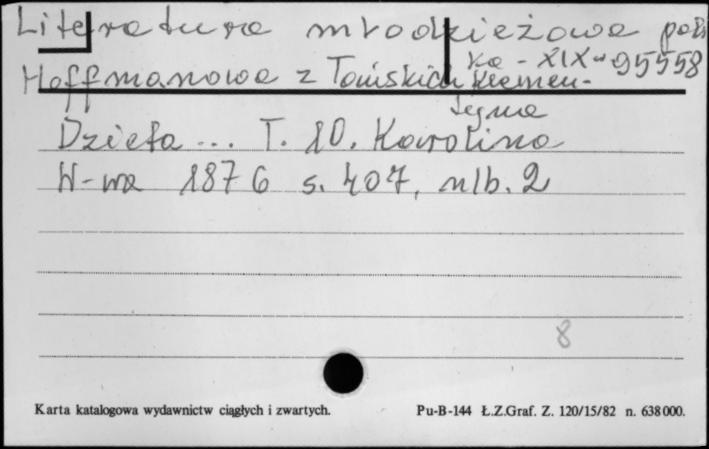 Literatura młodzieżowa pols
ka - XIX w 95558
Hoffmanowa z Tańskich Klemen-
tyna
Dzieła ... T. 10. Karolina
W-wa 1876 s. 407, nlb. 2
8
Karta katalogowa wydawnictw ciągłych i zwartych. Pu-B-144 Ł.Z.Graf. Z. 120/15/82 n. 638000.